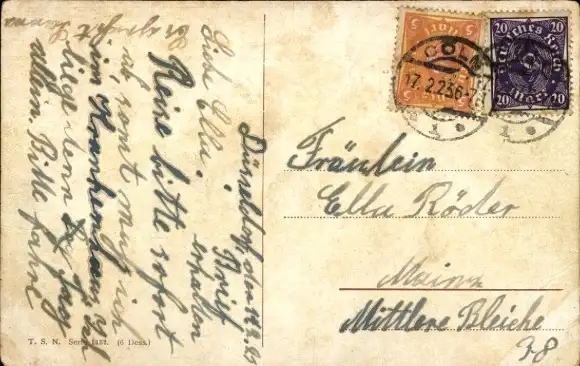 Düsseldorf, den
Brief
erhalten
Liebe Ella!
Reise bitte sofort
ab, sonst muß ich
im Krankenhaus. Ich
liege denn
allem. Bitte fahre
5
5
CÖLN
17.2.23.6-7
Deutsches Reich
20
20
20
20
Fräulein
Ella Röder
Mainz
Mittlere Bleiche
38
T. S. N. Serie (6 Dess.)